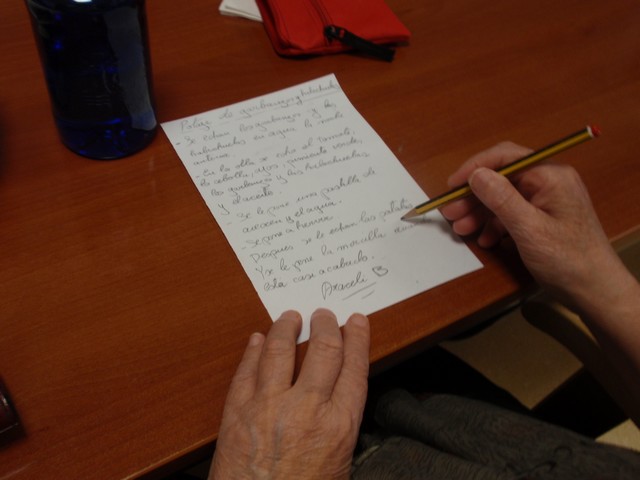 Potaje de garbanzos y habichuelas
- Se echan los garbanzos y las
habichuelas en agua la noche
antes.
- En la olla se echa el tomate,
la cebolla, ajos, pimiento verde,
los garbanzos y las habichuelas,
y el aceite.
- Se le pone una pastilla de
y el agua.
- Se pone a hervir.
Después se le echan las patatas
Y se le pone la morcilla
esta casi acabado.
Araceli B